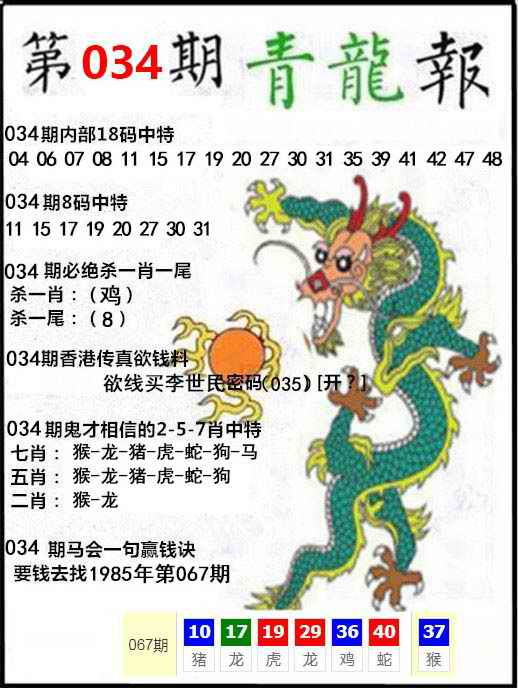 第034期青龍報
034期内部18码中特
04 06 07 08 11 15 17 19 20 27 30 31 35 39 41 42 47 48
034期8码中特
11 15 17 19 20 27 30 31
034 期必绝杀一肖一尾
杀一肖：（鸡）
杀一尾：（8）
034期香港传真欲钱料
欲线买李世民密码(035) [开？]
034期鬼才相信的2-5-7肖中特
七肖： 猴-龙-猪-虎-蛇-狗-马
五肖： 猴-龙-猪-虎-蛇-狗
二肖： 猴-龙
034 期马会一句赢钱诀
要钱去找1985年第067期
067期 10 17 19 29 36 40 37
猪 龙 虎 龙 鸡 蛇 猴